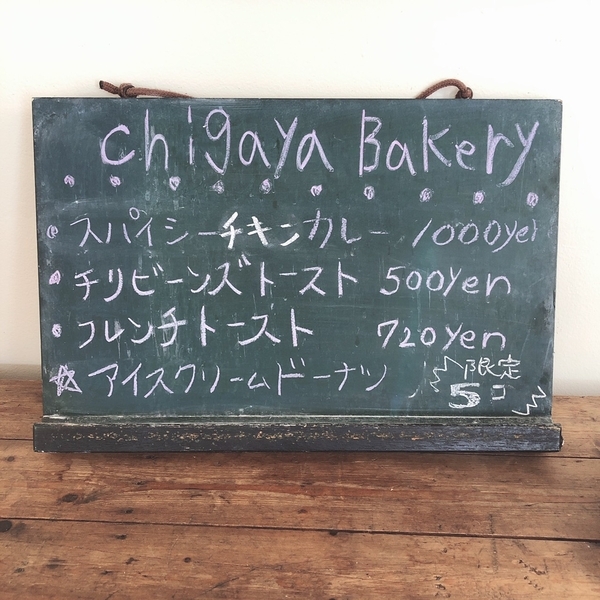 chigaya Bakery
スパイシーチキンカレー 1000yen
チリビーンズトースト 500yen
フレンチトースト 720yen
アイスクリームドーナツ 限定
5コ